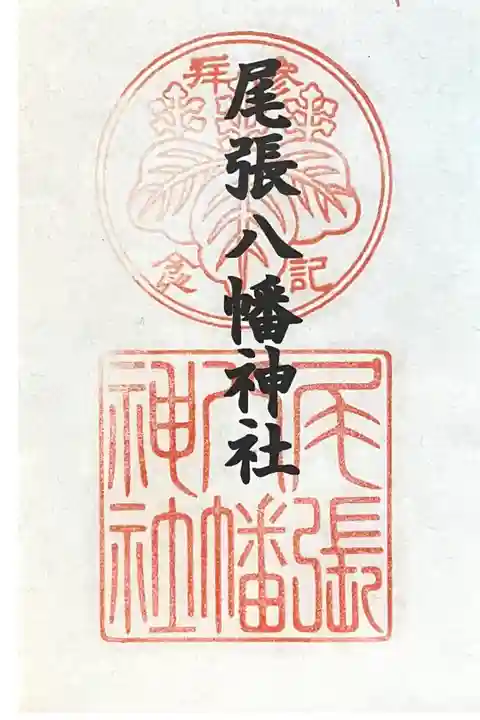 参拝
記念
尾張八幡神社
尾張
八幡
神社